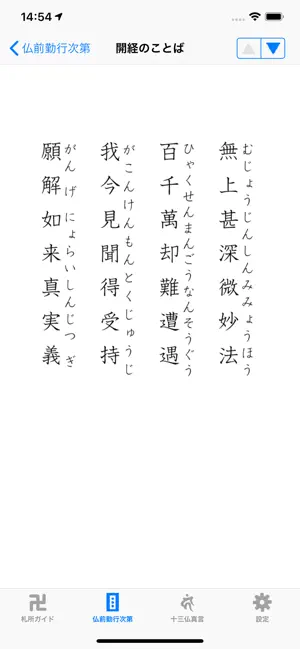 14:54
仏前勤行次第
開経のことば
無上甚深微妙法
むじょうじんしんみみょうほう
百千萬却難遭遇
ひゃくせんまんごうなんそうぐう
我今見聞得受持
がこんけんもんとくじゅうじ
願解如来真実義
がんげにょらいしんじつぎ
札所ガイド
仏前勤行次第
十三仏真言
設定